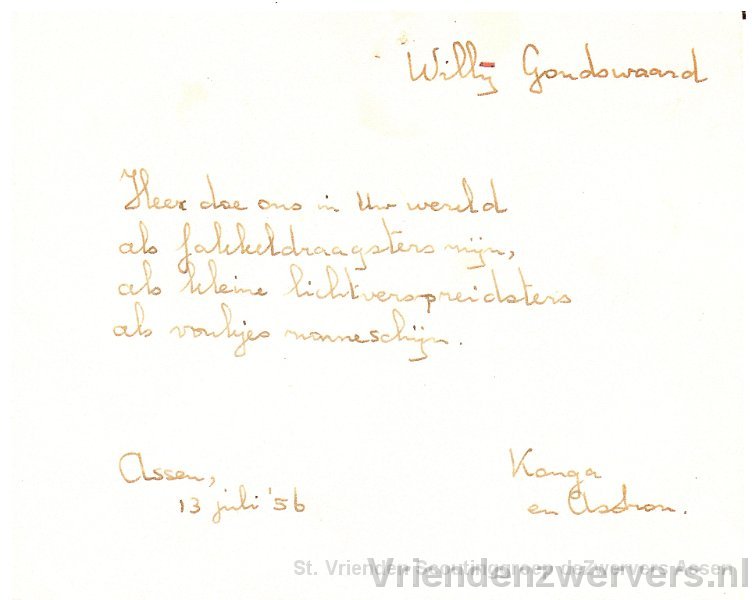 Willy Goudswaard
Heer doe ons in Uw wereld
als fakkeldraagsters zijn,
als kleine lichtverspreidsters
als vonkjes zonneschijn.
Assen,
13 juli '56
Kanga
en
St. Vrienden Scoutinggroep deZwervers Assen
Vriendenzwervers.nl